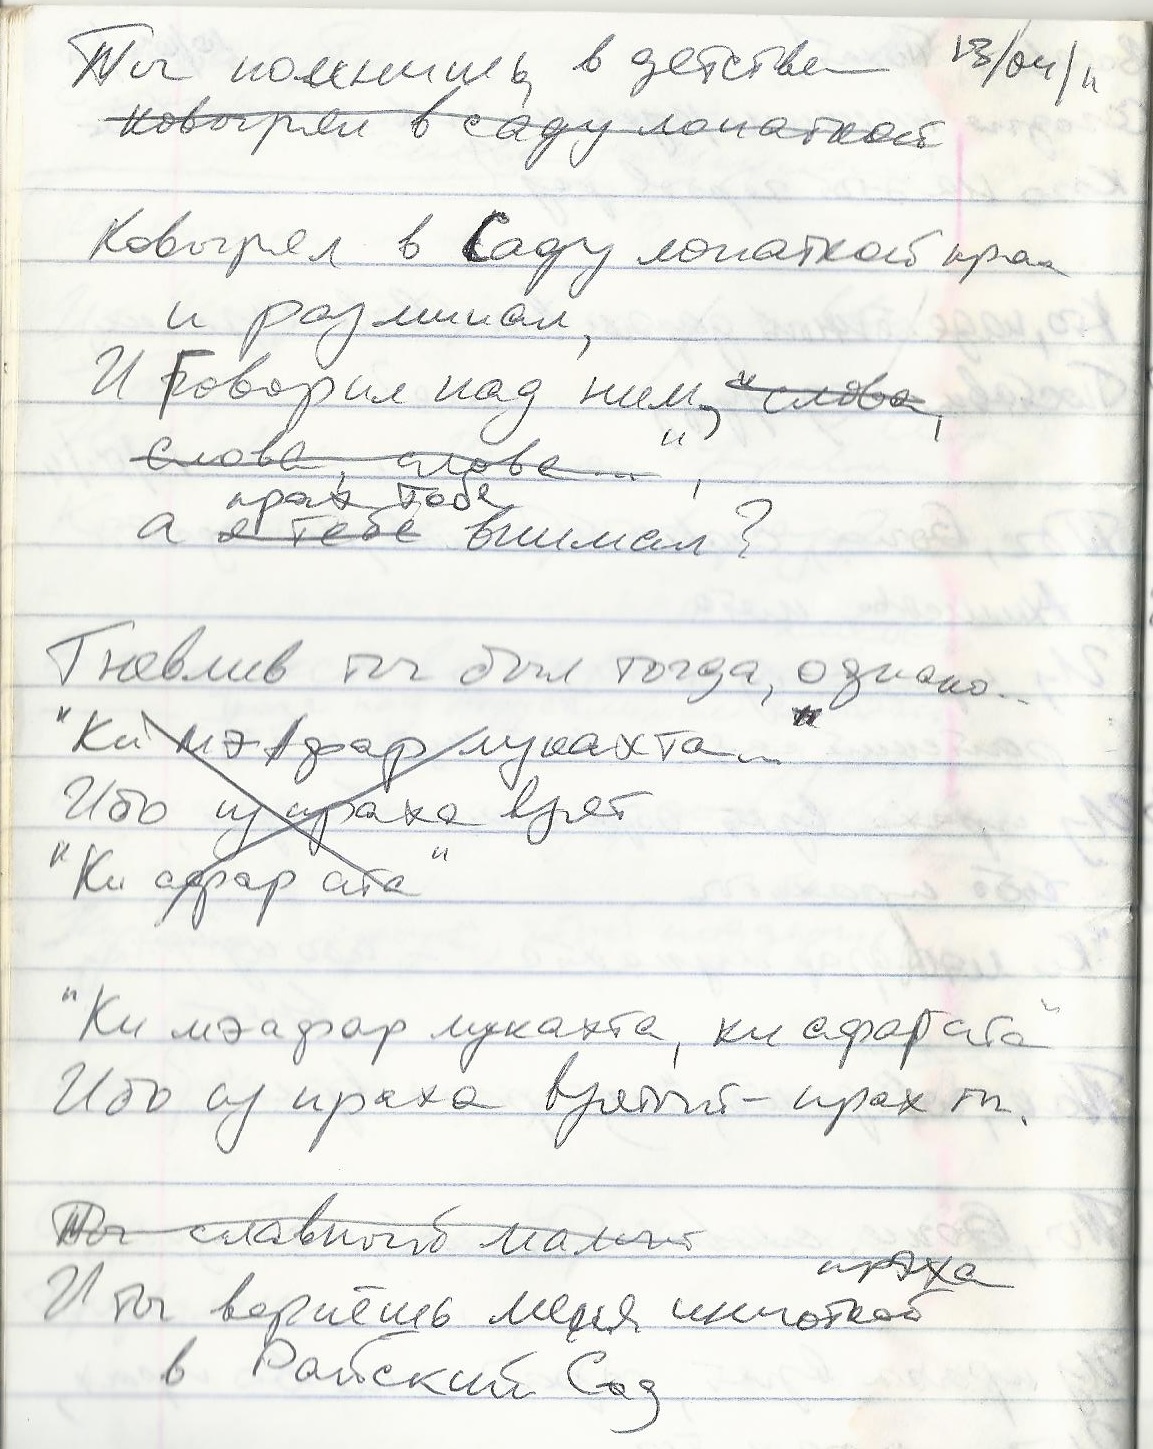 Ты помнишь, в детстве 13/04/11
ковырял в саду лопаткой
Ковырял в Саду лопаткой прах
и разминал,
И Говорил над ним, "слова,
слова, слова...",
прах тебе
а я тебе внимал?
Гневлив ты был тогда, однако...
"Ки мэ афар лукахта..."
Ибо из праха взят
"Ки афар ата"
"Ки мэафар лукахта, ки афар ата"
Ибо из праха взятый - прах ты.
Ты славный малый
праха
И ты вернёшь меня щепоткой
в Райский Сад